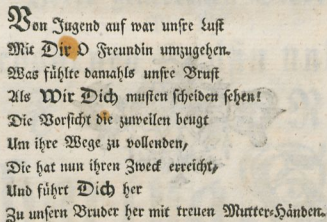 Von Jugend auf war unsre Lust
Mit Dir O Freundin umzugehen.
Was fühlte damahls unsre Brust
Als Wir Dich musten scheiden sehen!
Die Vorsicht die zuweilen beugt
Um ihre Wege zu vollenden,
Die hat nun ihren Zweck erreicht,
Und führt Dich her
Zu unsern Bruder her mit treuen Mutter-Händen.